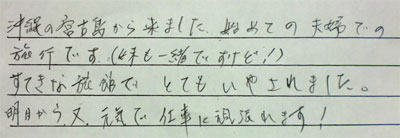 沖縄の宮古島から来ました。始めての夫婦での
旅行です。(妹も一緒ですけど!)
すてきな旅館で とてもいやされました。
明日から、又、元気で仕事に頑張れます!